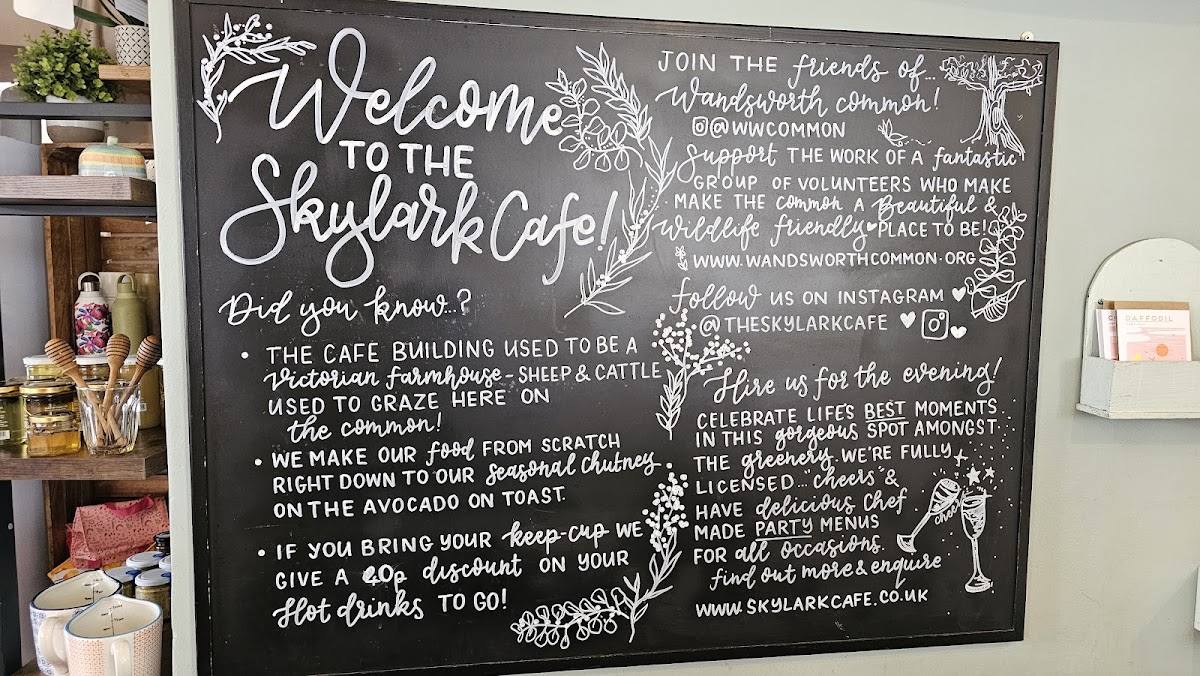 Welcome
TO THE
Skylark Cafe!
Did you know...?
• THE CAFE BUILDING USED TO BE A
Victorian farmhouse - SHEEP & CATTLE
USED TO GRAZE HERE ON
the common!
• WE MAKE OUR food FROM SCRATCH
RIGHT DOWN TO OUR seasonal chutney
ON THE AVOCADO ON TOAST.
• IF YOU BRING YOUR keep-cup WE
GIVE A 20p discount ON YOUR
Hot drinks TO GO!
JOIN THE friends of...
Wandsworth common!
@WWCOMMON
Support THE WORK OF A fantastic
GROUP OF VOLUNTEERS WHO MAKE
MAKE THE common A Beautiful &
Wildlife friendly PLACE TO BE!
WWW.WANDSWORTHCOMMON.ORG
follow US ON INSTAGRAM
@THESKYLARKCAFE
Hire us for the evening!
CELEBRATE LIFE'S BEST MOMENTS
IN THIS gorgeous SPOT AMONGST
THE greenery. WE'RE FULLY
LICENSED... "cheers" &
HAVE delicious chef
MADE PARTY MENUS
FOR all occasions.
find out more & enquire
WWW.SKYLARKCAFE.CO.UK
DAFFODIL